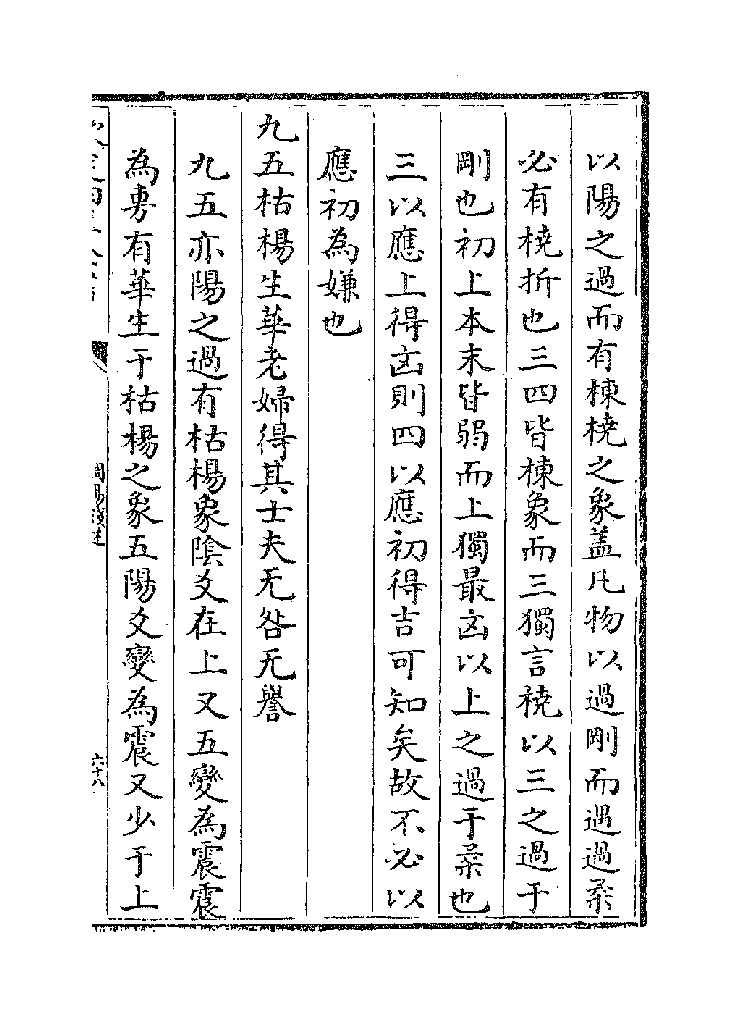 以陽之過而有棟橈之象盖凡物以過剛而遇過柔
必有橈折也三四皆棟象而三獨言橈以三之過于
剛也初上本末皆弱而上獨最凶以上之過于柔也
三以應上得凶則四以應初得吉可知矣故不必以
應初為嫌也
九五枯楊生華老婦得其士夫无咎无譽
九五亦陽之過有枯楊象陰爻在上又五變為震震
為旉有華生于枯楊之象五陽爻變為震又少于上
周易淺述
六十八